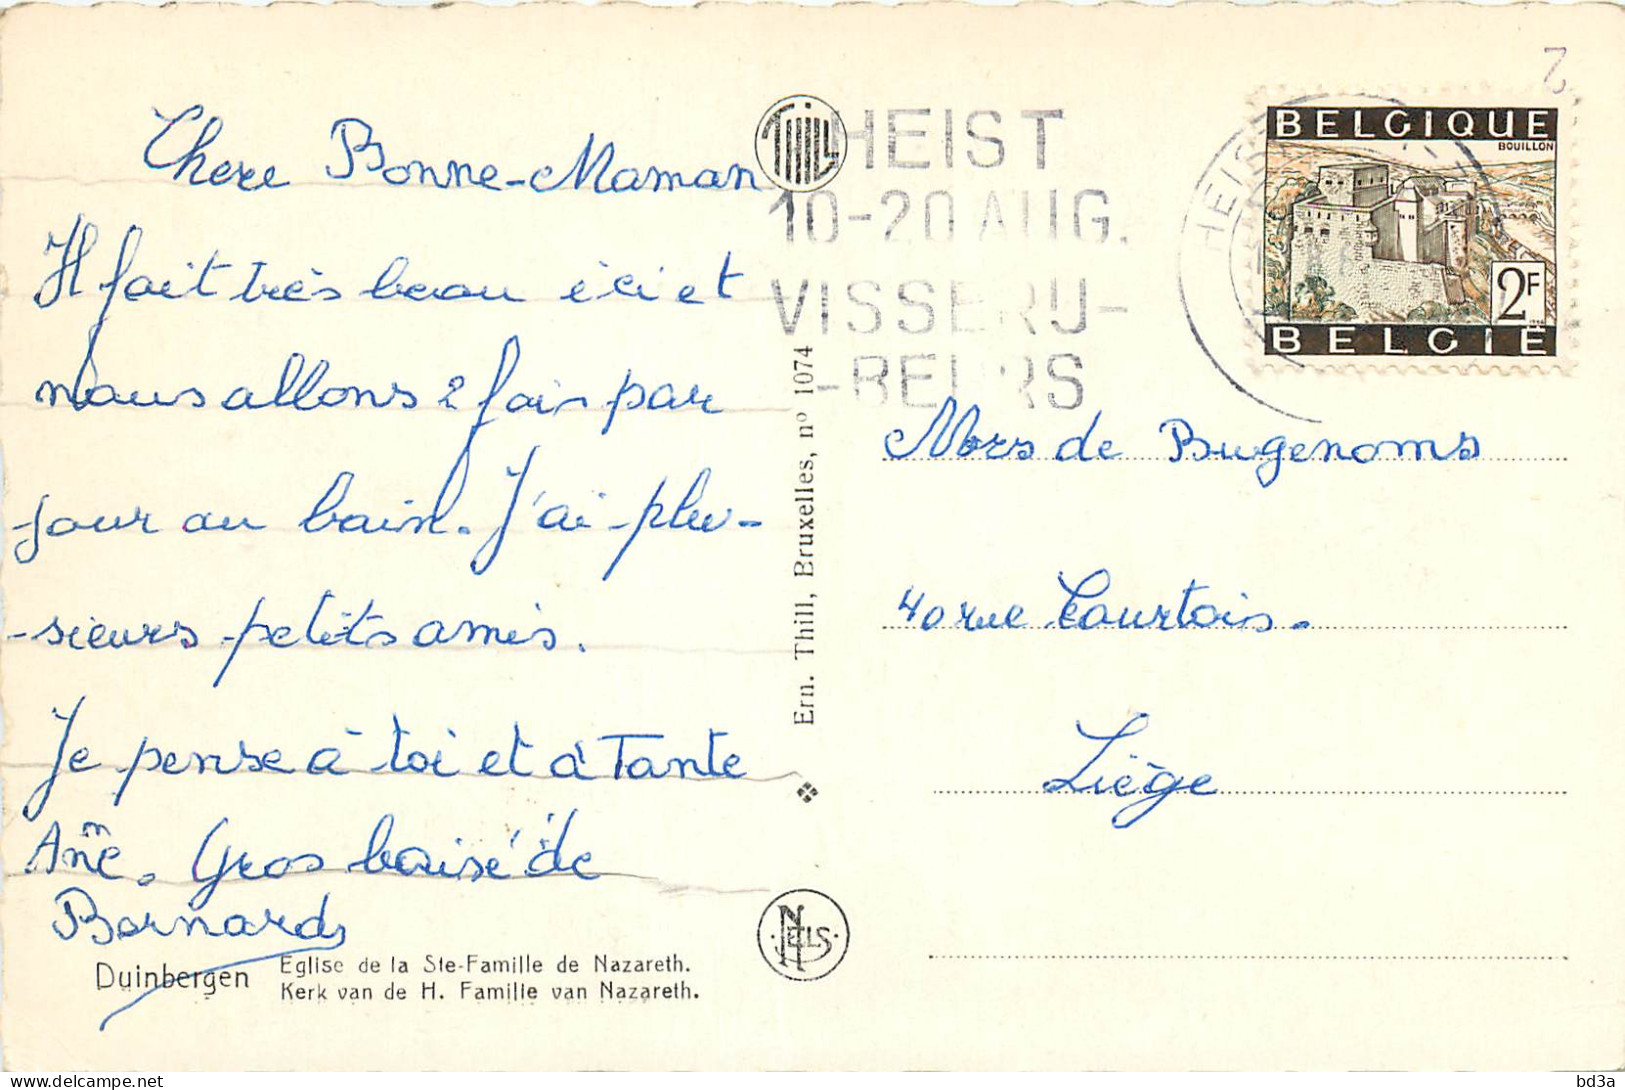 Chere Bonne-Maman
Il fait très beau ici et
nous allons 2 fois par
jour au bain. J'ai plu-
-sieurs petits amis.
Je pense à toi et à Tante
Anne. Gros baisé de
Bernard
Duinbergen
Eglise de la Ste-Famille de Nazareth.
Kerk van de H. Familie van Nazareth.
THILL
Ern. Thill, Bruxelles, nº 1074
NELS
HEIST
10-20 AUG.
VISSERIJ-
-BEURS
HEIS
2
BELGIQUE
BOUILLON
2F
BELGIË
Mors de Bugenoms
40 rue Courtois.
Liège
bd3a